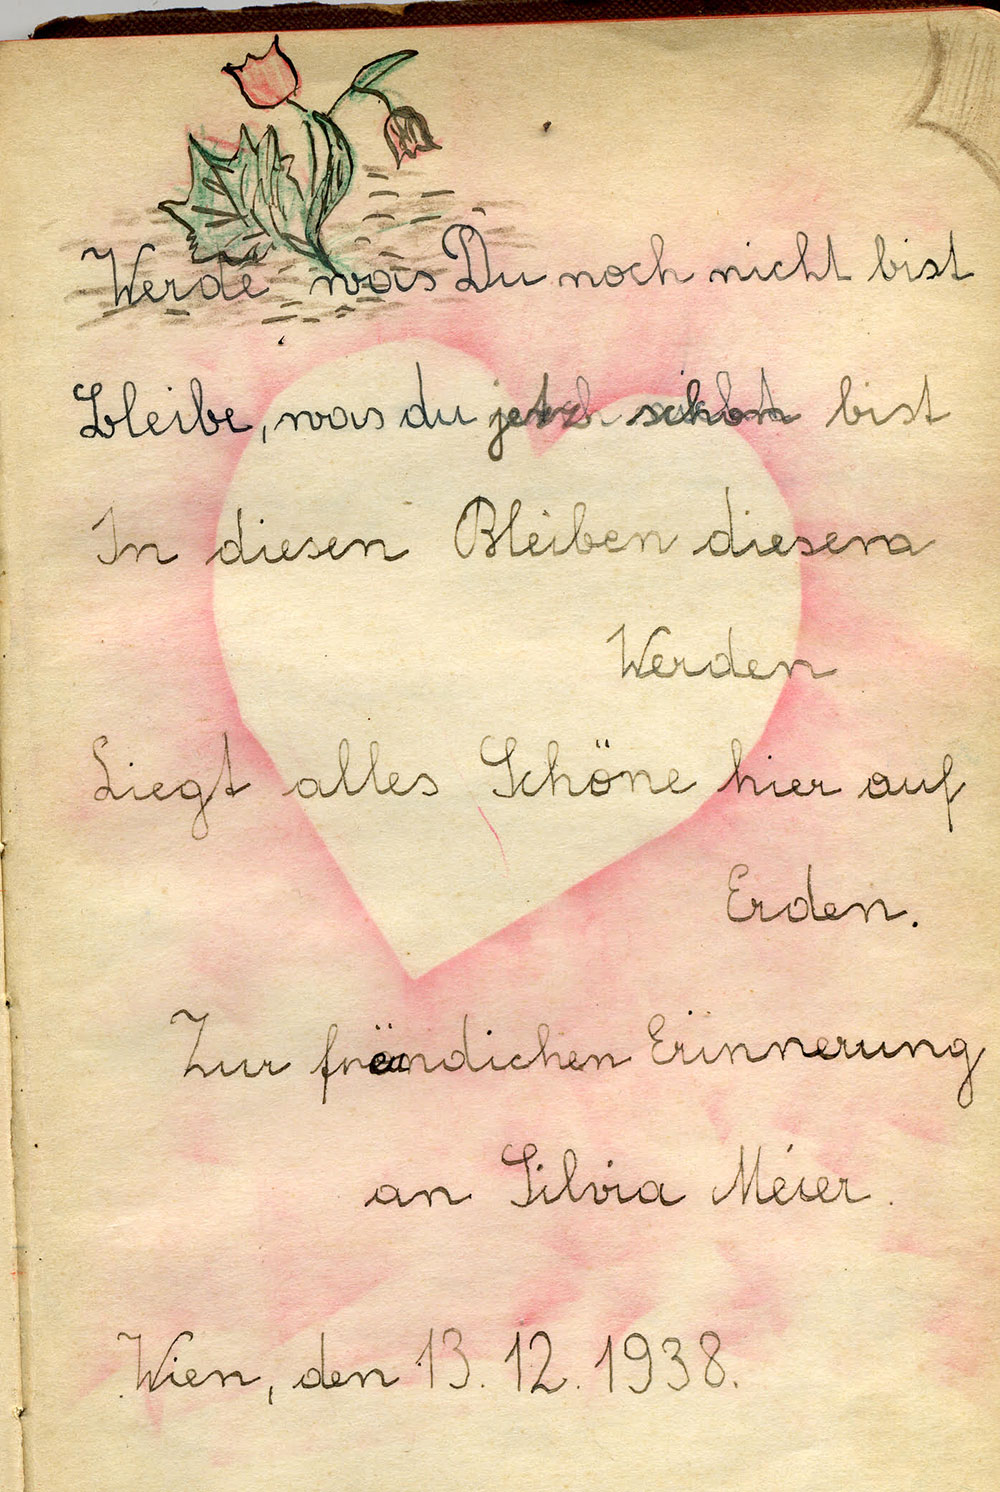 Werde was Du noch nicht bist
bleibe, was du jetzt schon bist
In diesen Bleiben diesem
Werden
Liegt alles Schöne hier auf
Erden.
Zur freundichen Erinnerung
an Silvia Meier.
Wien, den 13. 12. 1938.